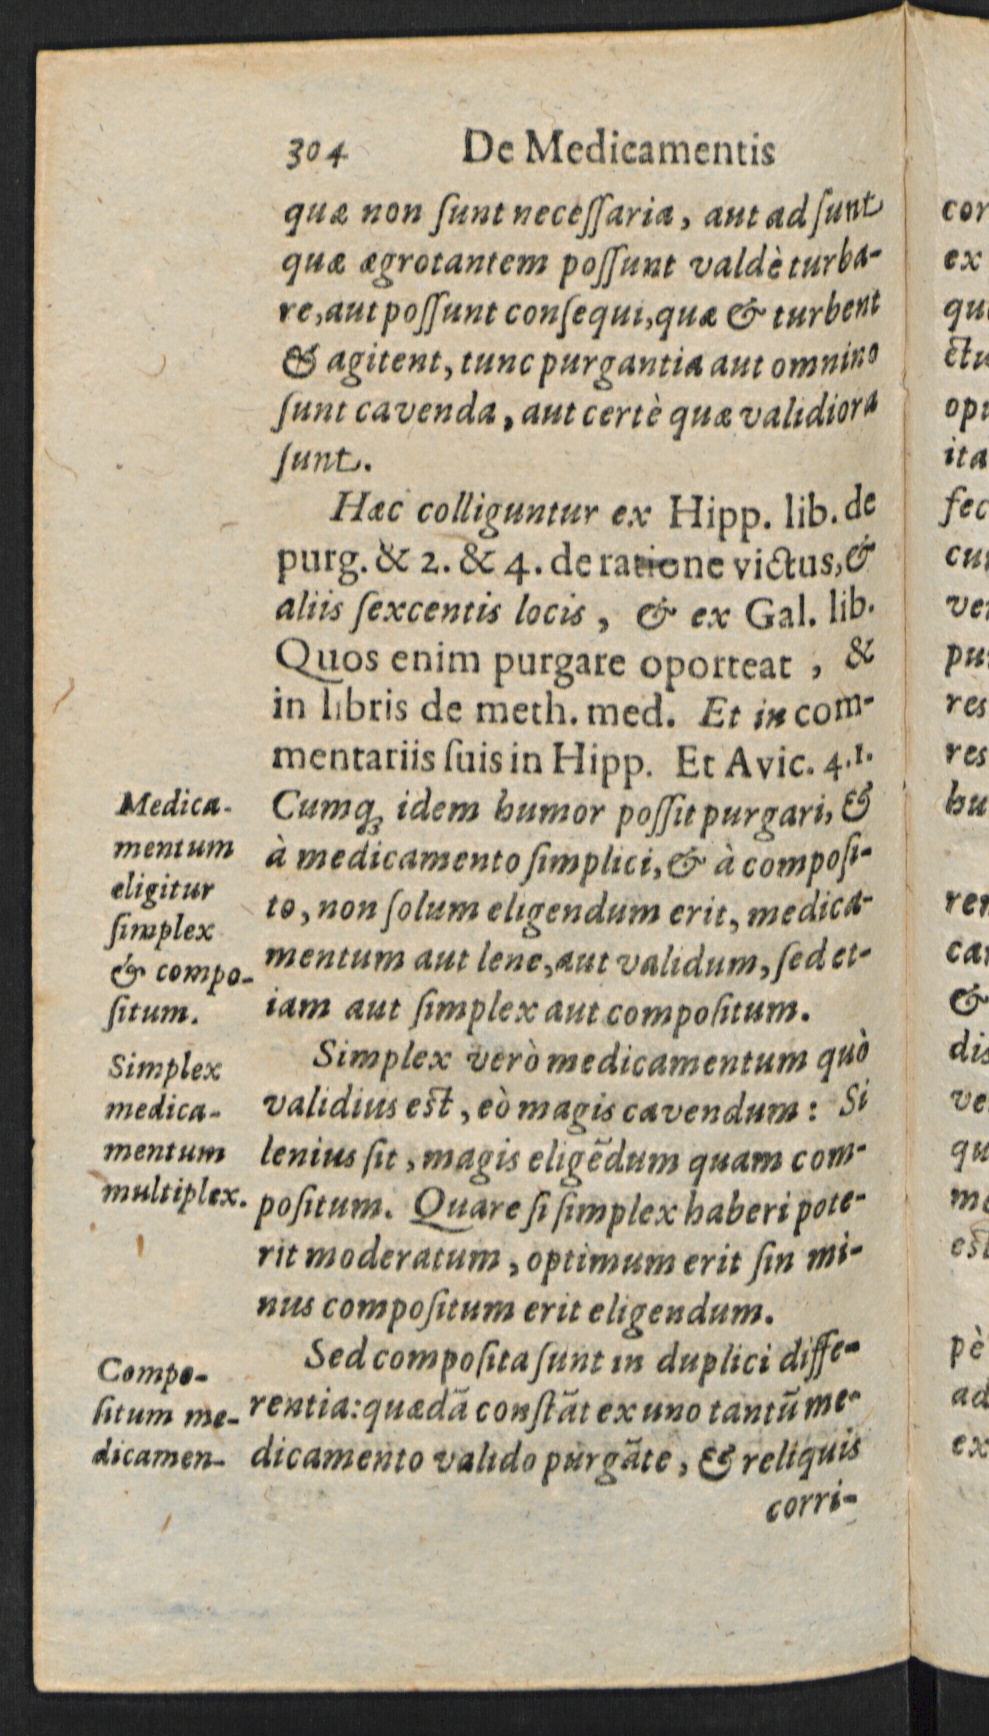 304 De Medicamentis
quæ non ſunt neceſſaria, aut ad ſunt
quæ ægrotantem poſſunt valdè turba-
re, aut poſſunt conſequi, quæ & turbent
& agitent, tunc purgantia aut omnino
ſunt cavenda, aut certè quæ validiora
ſunt.
Hæc colliguntur ex Hipp. lib. de
purg. & 2. & 4. de ratione victus, &
aliis ſexcentis locis, & ex Gal. lib.
Quos enim purgare oporteat, &
in libris de meth. med. Et in com-
mentariis ſuis in Hipp. Et Avic. 4.1.
Cumq; idem humor poſſit purgari, &
à medicamento ſimplici, & à compoſi-
to, non ſolum eligendum erit, medica-
mentum aut lene, aut validum, ſed et-
iam aut ſimplex aut compoſitum.
Simplex verò medicamentum quò
validius eſt, eò magis cavendum: Si
lenius ſit, magis eligẽdum quam com-
poſitum. Quare ſi ſimplex haberi pote-
rit moderatum, optimum erit ſin mi-
nus compoſitum erit eligendum.
Sed compoſita ſunt in duplici diffe-
rentia: quædã conſtãt ex uno tantũ me-
dicamento valido purgãte, & reliquis
corri-
Medica-
mentum
eligitur
ſimplex
& compo-
ſitum.
Simplex
medica-
mentum
multiplex.
Compo-
ſitum me-
dicamen-
cor
ex
qu
ctu
opi
ita
fec
cu
ve
pu
res
res
hu
ren
can
&
dis
ve
qu
me
eſt
pè
ad
ex